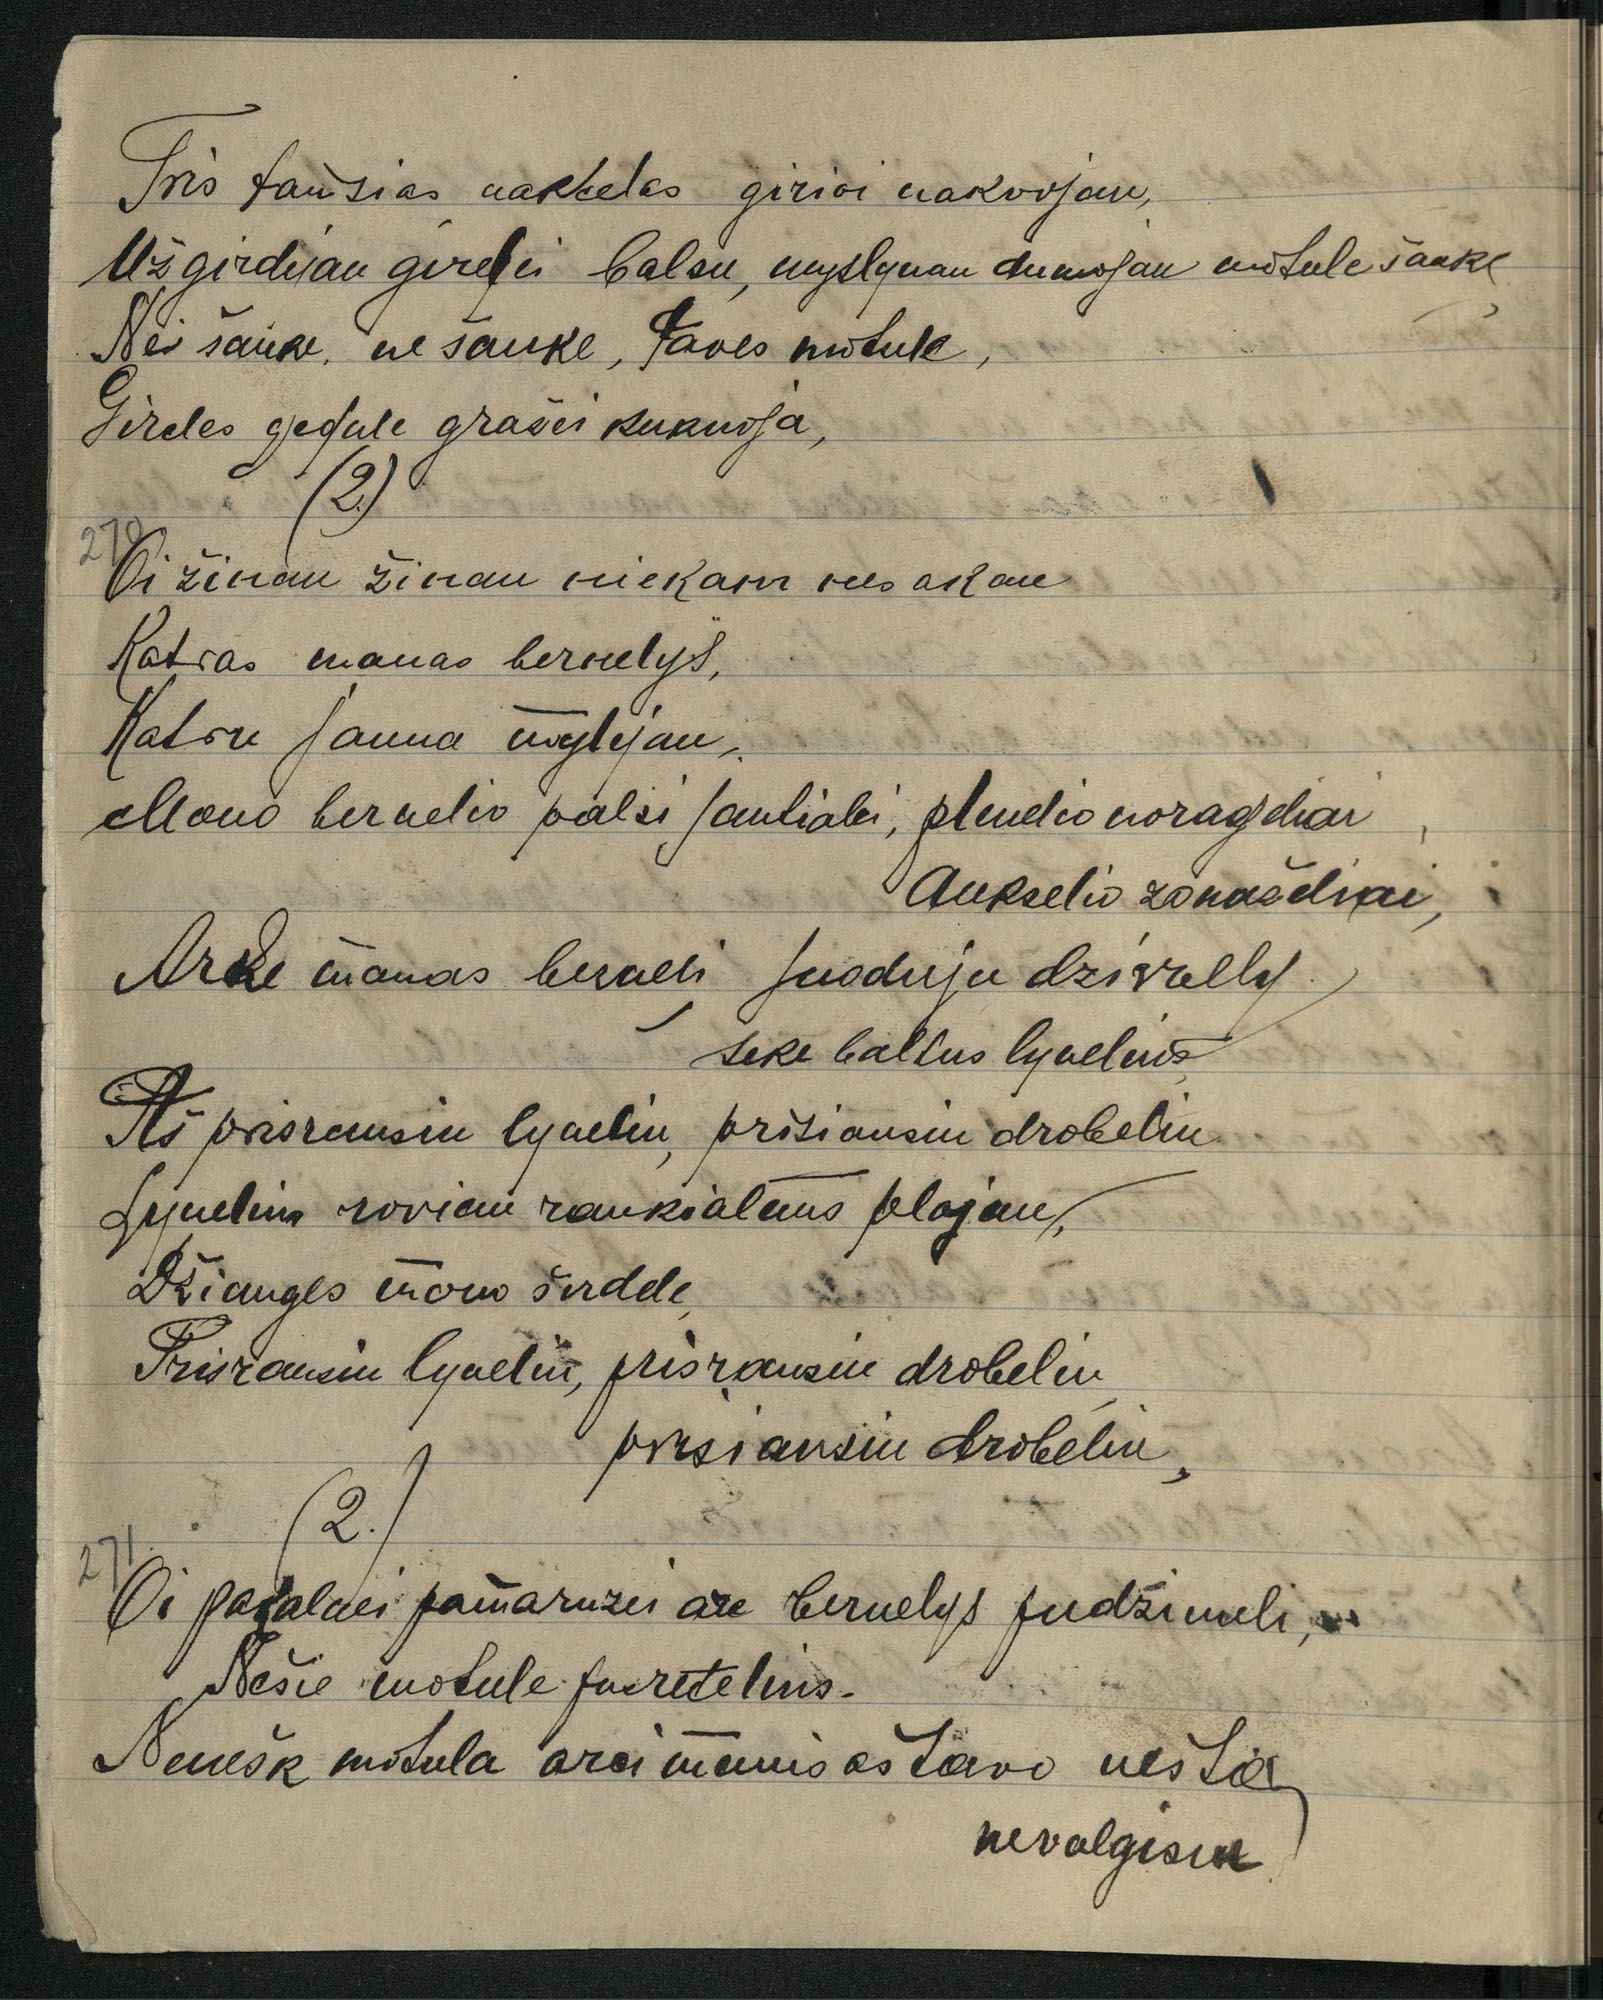 Tris tamsias naktelas girioi nakvojau,
Užgirdijau girelei balsu, myslynau dumojau motule šauke
Nei šauke, ne šauke, taves motule,
Girelės gegule gražei kukuoja,
(2.)
270
Oi žinau žinau niekam nesakau
Katras manas bernelys,
Katru jauna mylijau,
Mano bernelio palsi jauteliai, pluudio norageliai,
Aukselio zomaželiai,
Arke manas berneli juoduju dzirvelly
seke baltus lynelius
Aš prisrausiu lyneliu, prisiausiu drobeliu
Lynelius roviau rankialems plojau,
Džiauges mano širdele,
Prisrausiu lyneliu, prisrausiu drobeliu
prisiausiu drobeliu,
(2.)
271.
Oi pagalnei pamaruzei are bernelys pudžimeli,
Nešie motule pusretelius.
Nenešk motula arei mumis aš tavo nešta
nevalgisiu